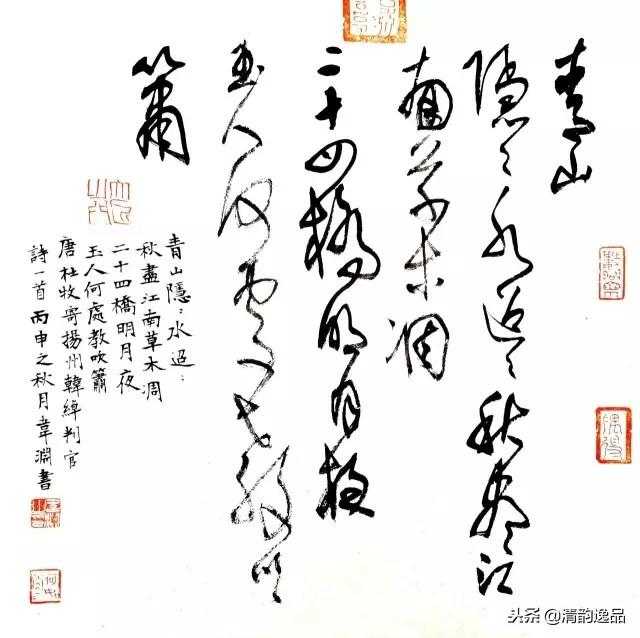 青山
隱〻水迢〻秋盡江
南草木凋
二十四橋明月夜
玉人何處教吹
簫
青山隱：水迢：
秋盡江南草木凋
二十四橋明月夜
玉人何處教吹簫
唐杜牧寄揚州韓綽判官
詩一首丙申之秋月韋淵書
偶得
头条 @清韵逸品